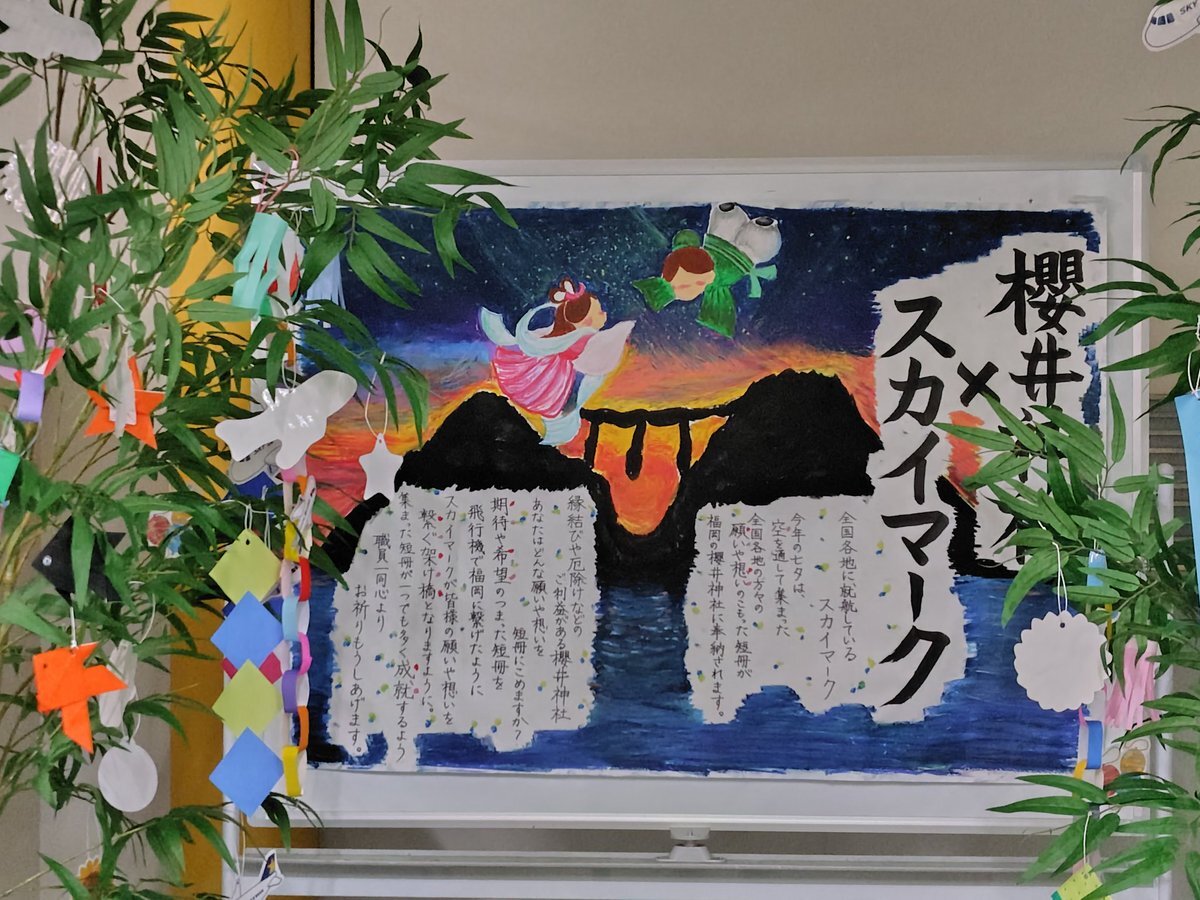 櫻井
×
スカイマーク
全国各地に就航している
スカイマーク
今年の七夕は、
空を通して集まった
全国各地の方々の
願いや想いのこもった短冊が
福岡の櫻井神社に奉納されます。
縁結びや厄除けなどの
ご利益がある櫻井神社
あなたはどんな願いや想いを
短冊にこめますか?
期待や希望のつまった短冊を
飛行機で福岡に繋げたように
スカイマークが皆様の願いや想いを
繋ぐ架け橋となりますように。
集まった短冊が一つでも多く成就するよう
職員一同心より
お祈りもうしあげます。
SKY